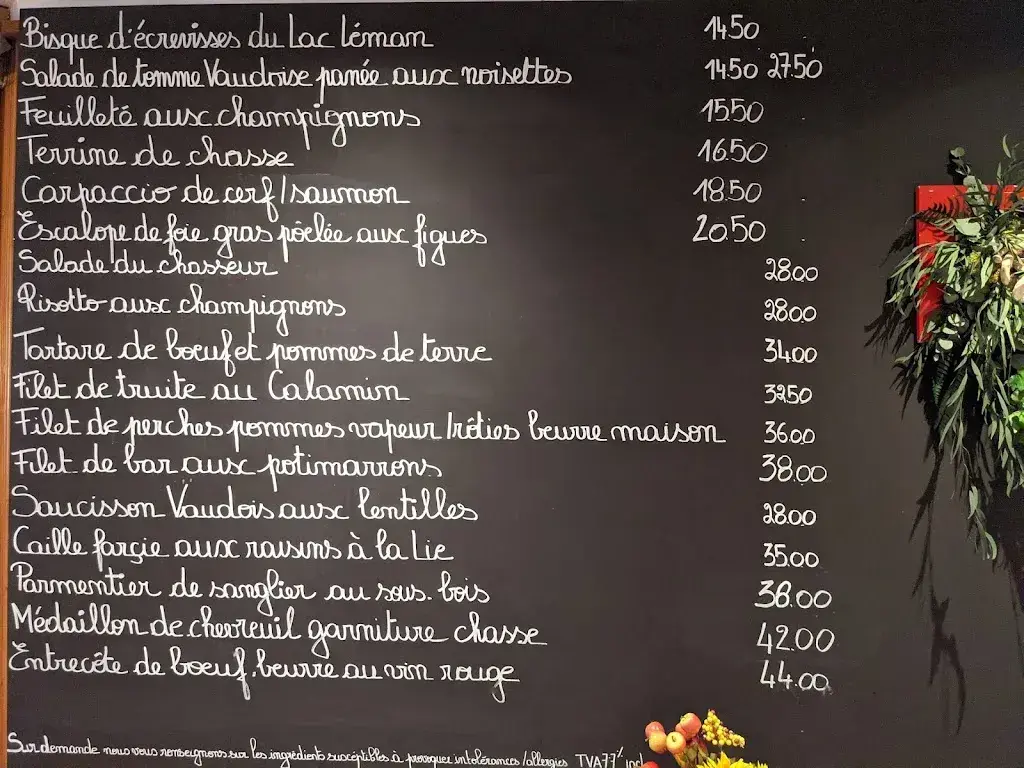 Bisque d'écrevisses du Lac Léman 14.50
Salade de tomme Vaudoise panée aux noisettes 14.50 27.50
Feuilleté aux champignons 15.50
Terrine de chasse 16.50
Carpaccio de cerf/saumon 18.50
Escalope de foie gras pôêlée aux figues 20.50
Salade du chasseur 28.00
Risotto aux champignons 28.00
Tartare de boeuf et pommes de terre 34.00
Filet de truite au Calamin 32.50
Filet de perches pommes vapeur/rôties beurre maison 36.00
Filet de bar aux potimarrons 38.00
Saucisson Vaudois aux lentilles 28.00
Caille farçie aux raisins à la Lie 35.00
Parmentier de sanglier au sous.bois 38.00
Médaillon de chevreuil garniture chasse 42.00
Entrecôte de boeuf.beurre au vin rouge 44.00
Sur demande nous vous renseignerons sur les ingrédients susceptibles à provoquer intolérances/allergies TVA 7.7% incl